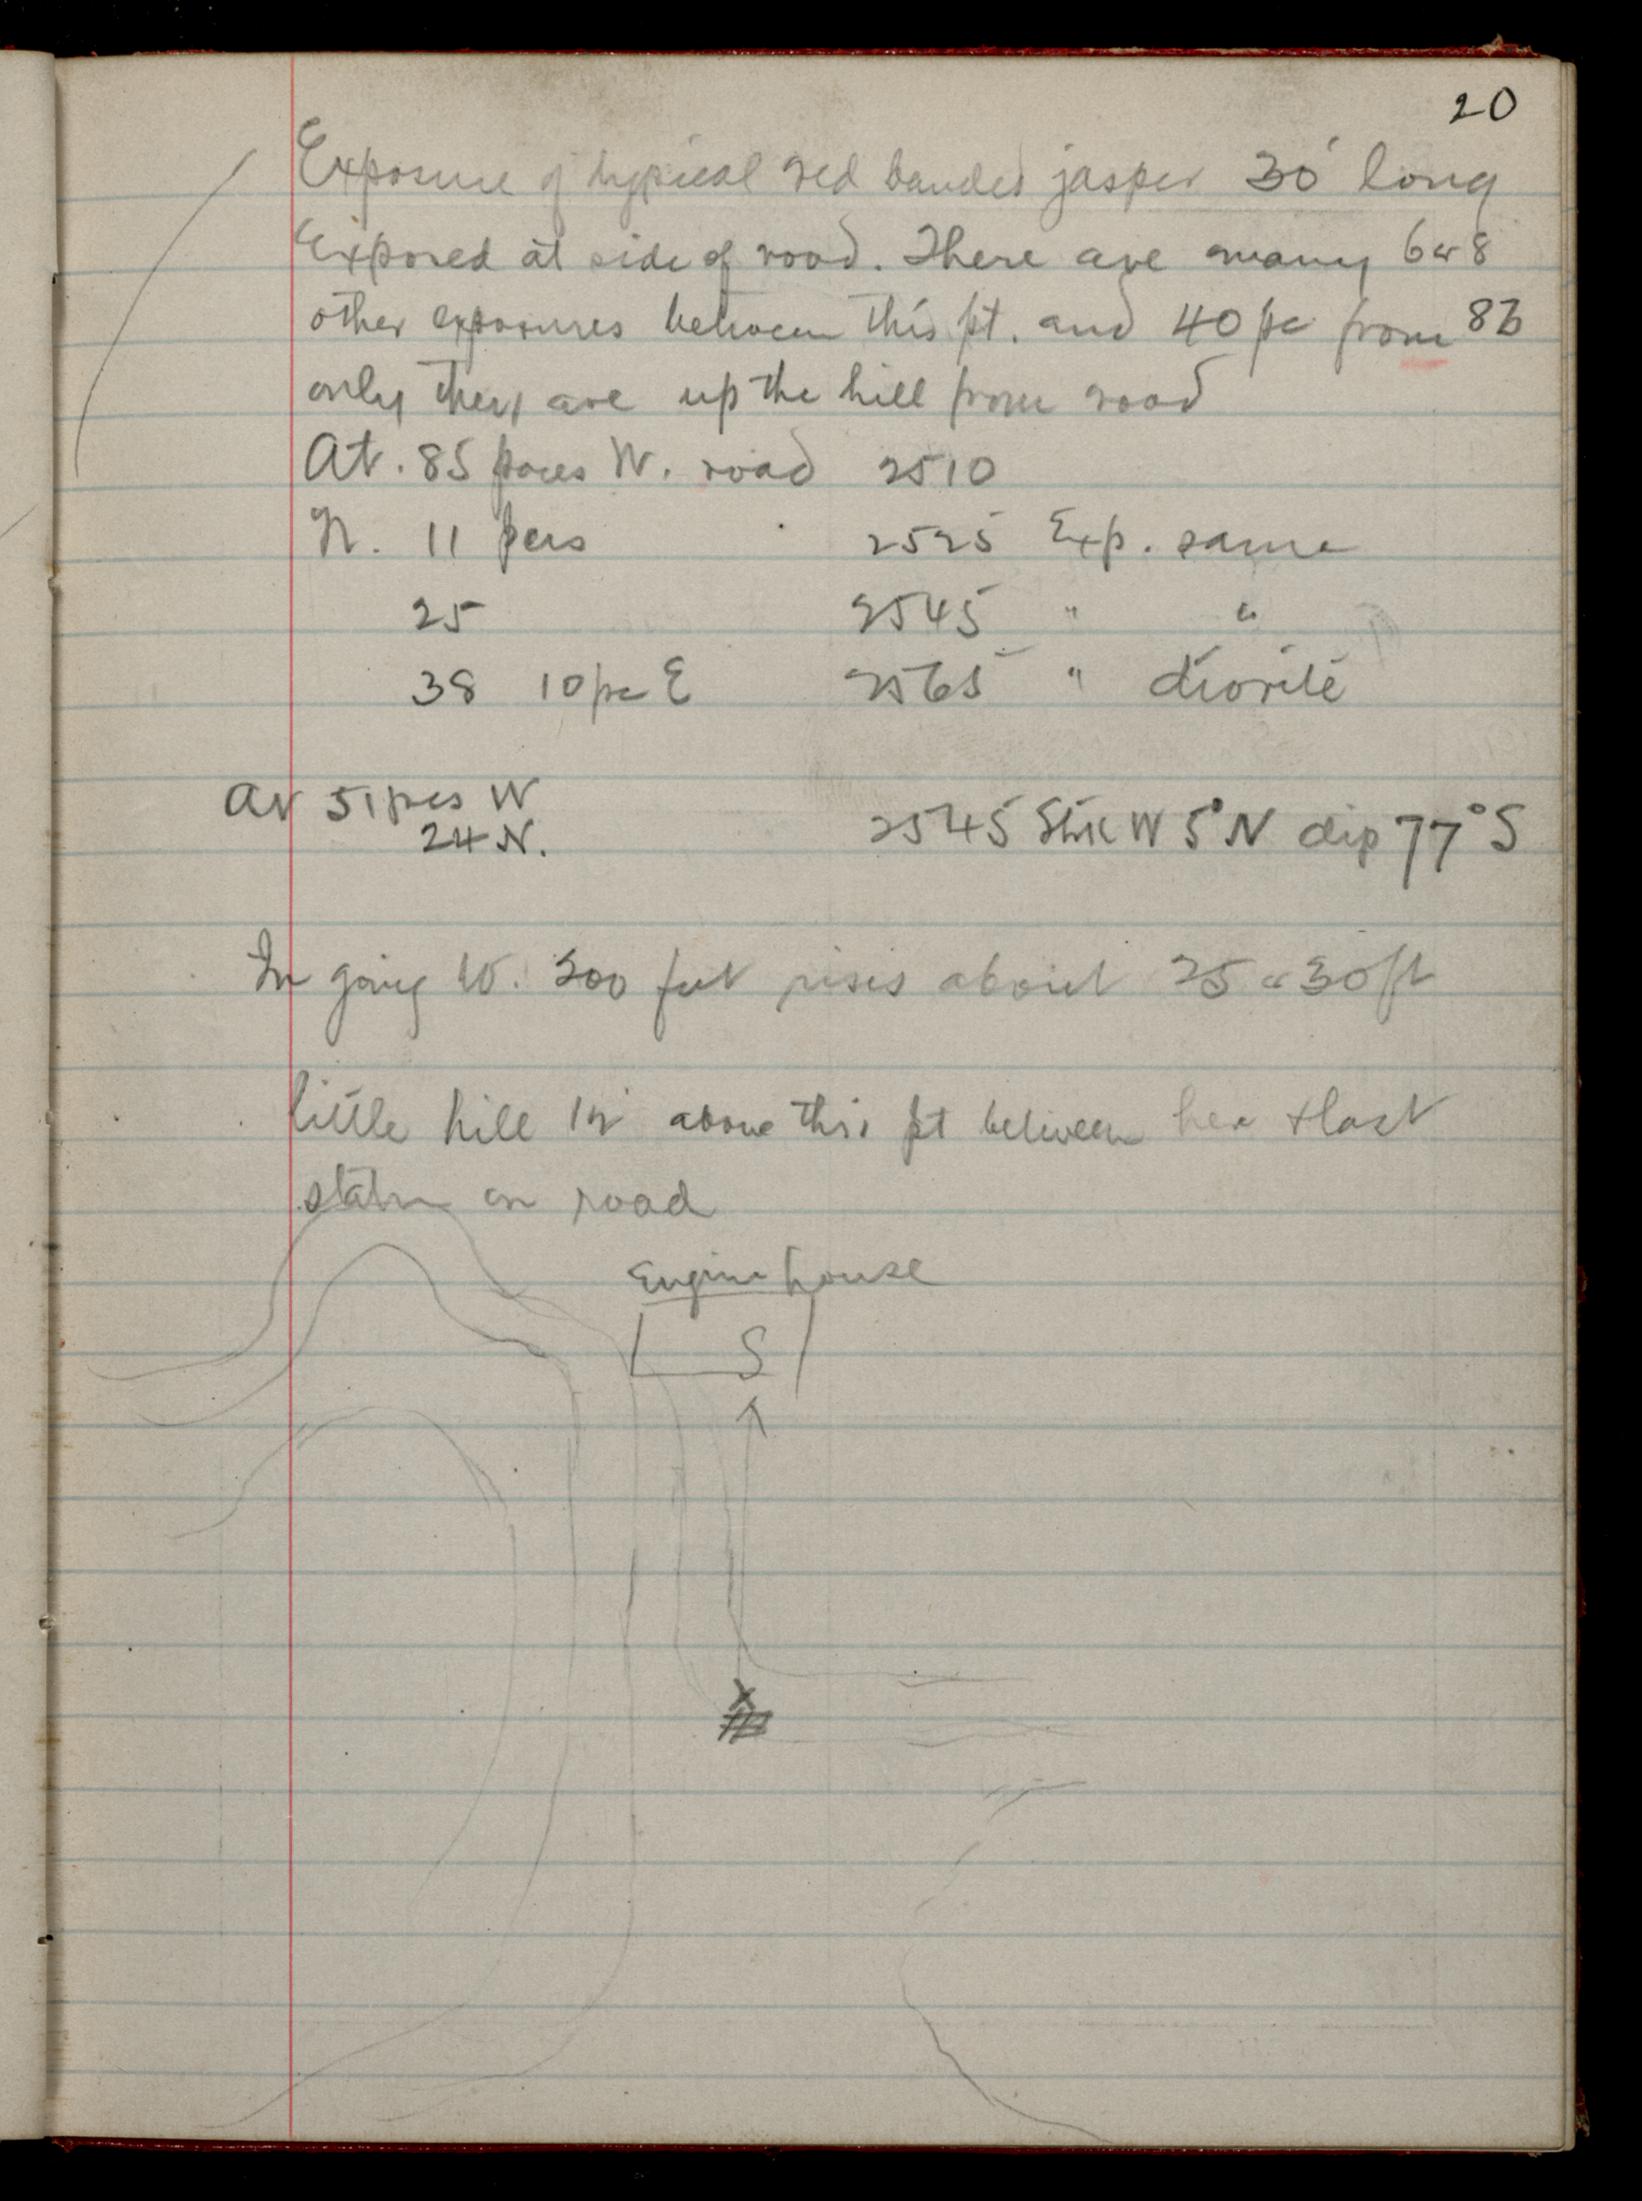 20
Exposure of typical red banded jasper 30' long
Exposed at side of road. There are many 6 or 8
other exposures between this pt. and 40 pc from 83
only they are up the hill from road
At. 85 paces W. road 2510
N. 11 pcs 2525 Exp. same
25 2545 " "
38 10 pc E 2565 " diorite
At 51 pcs W
24 N. 2545 Strk W 5° N dip 77° S
In going W. 300 feet rises about 25 or 30 ft
little hill above this pt between here + last
station on road
Engine house
S